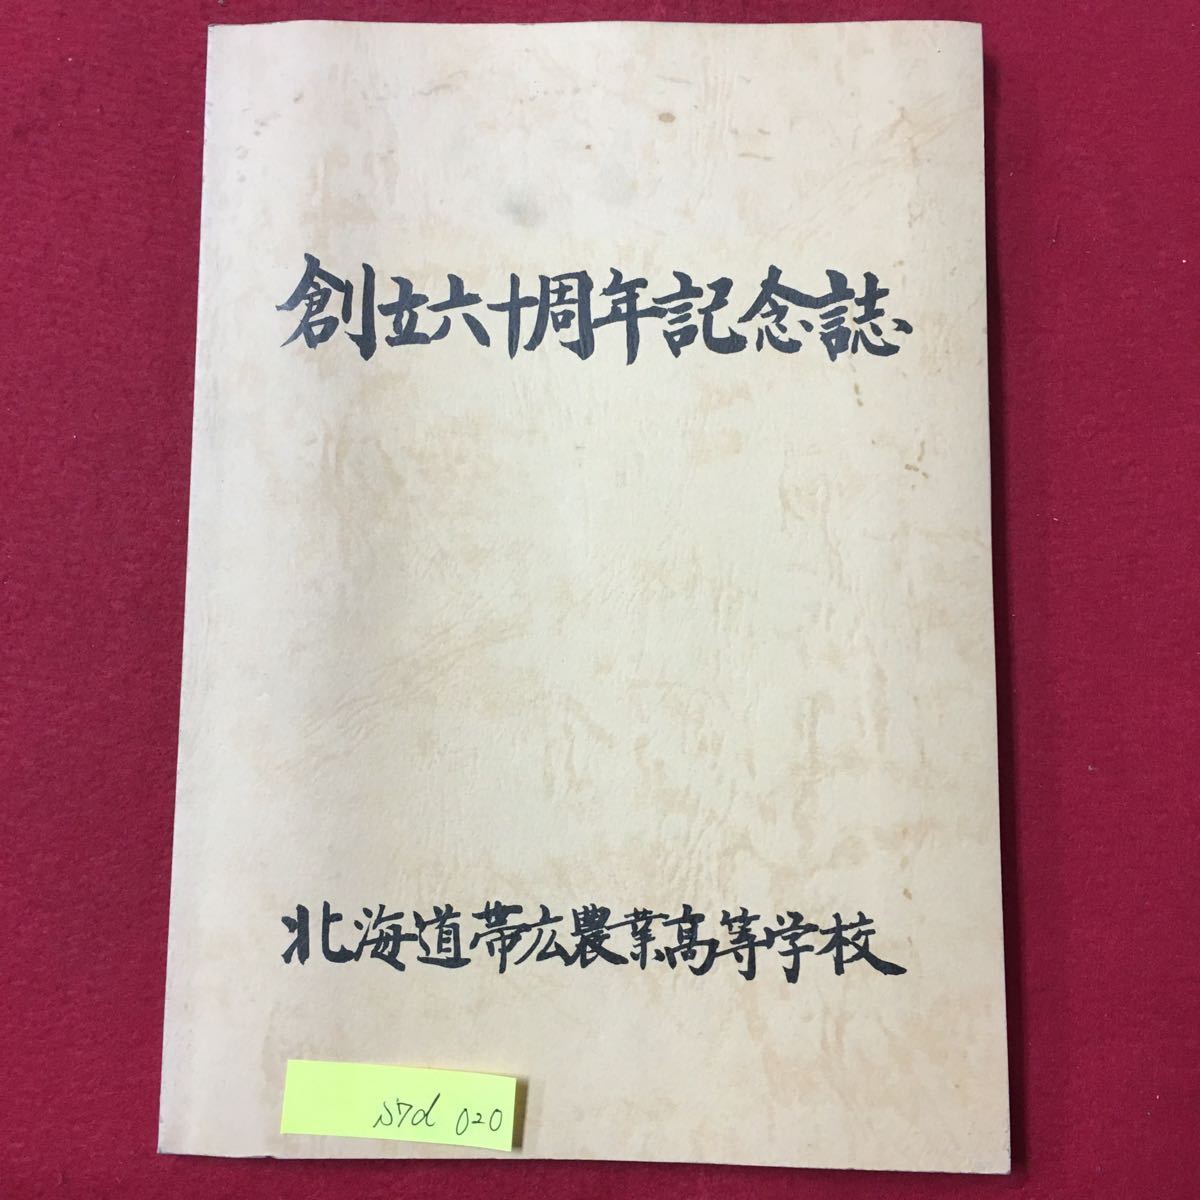 創立六十周年記念誌
北海道帯広農業高等学校
S7d 020